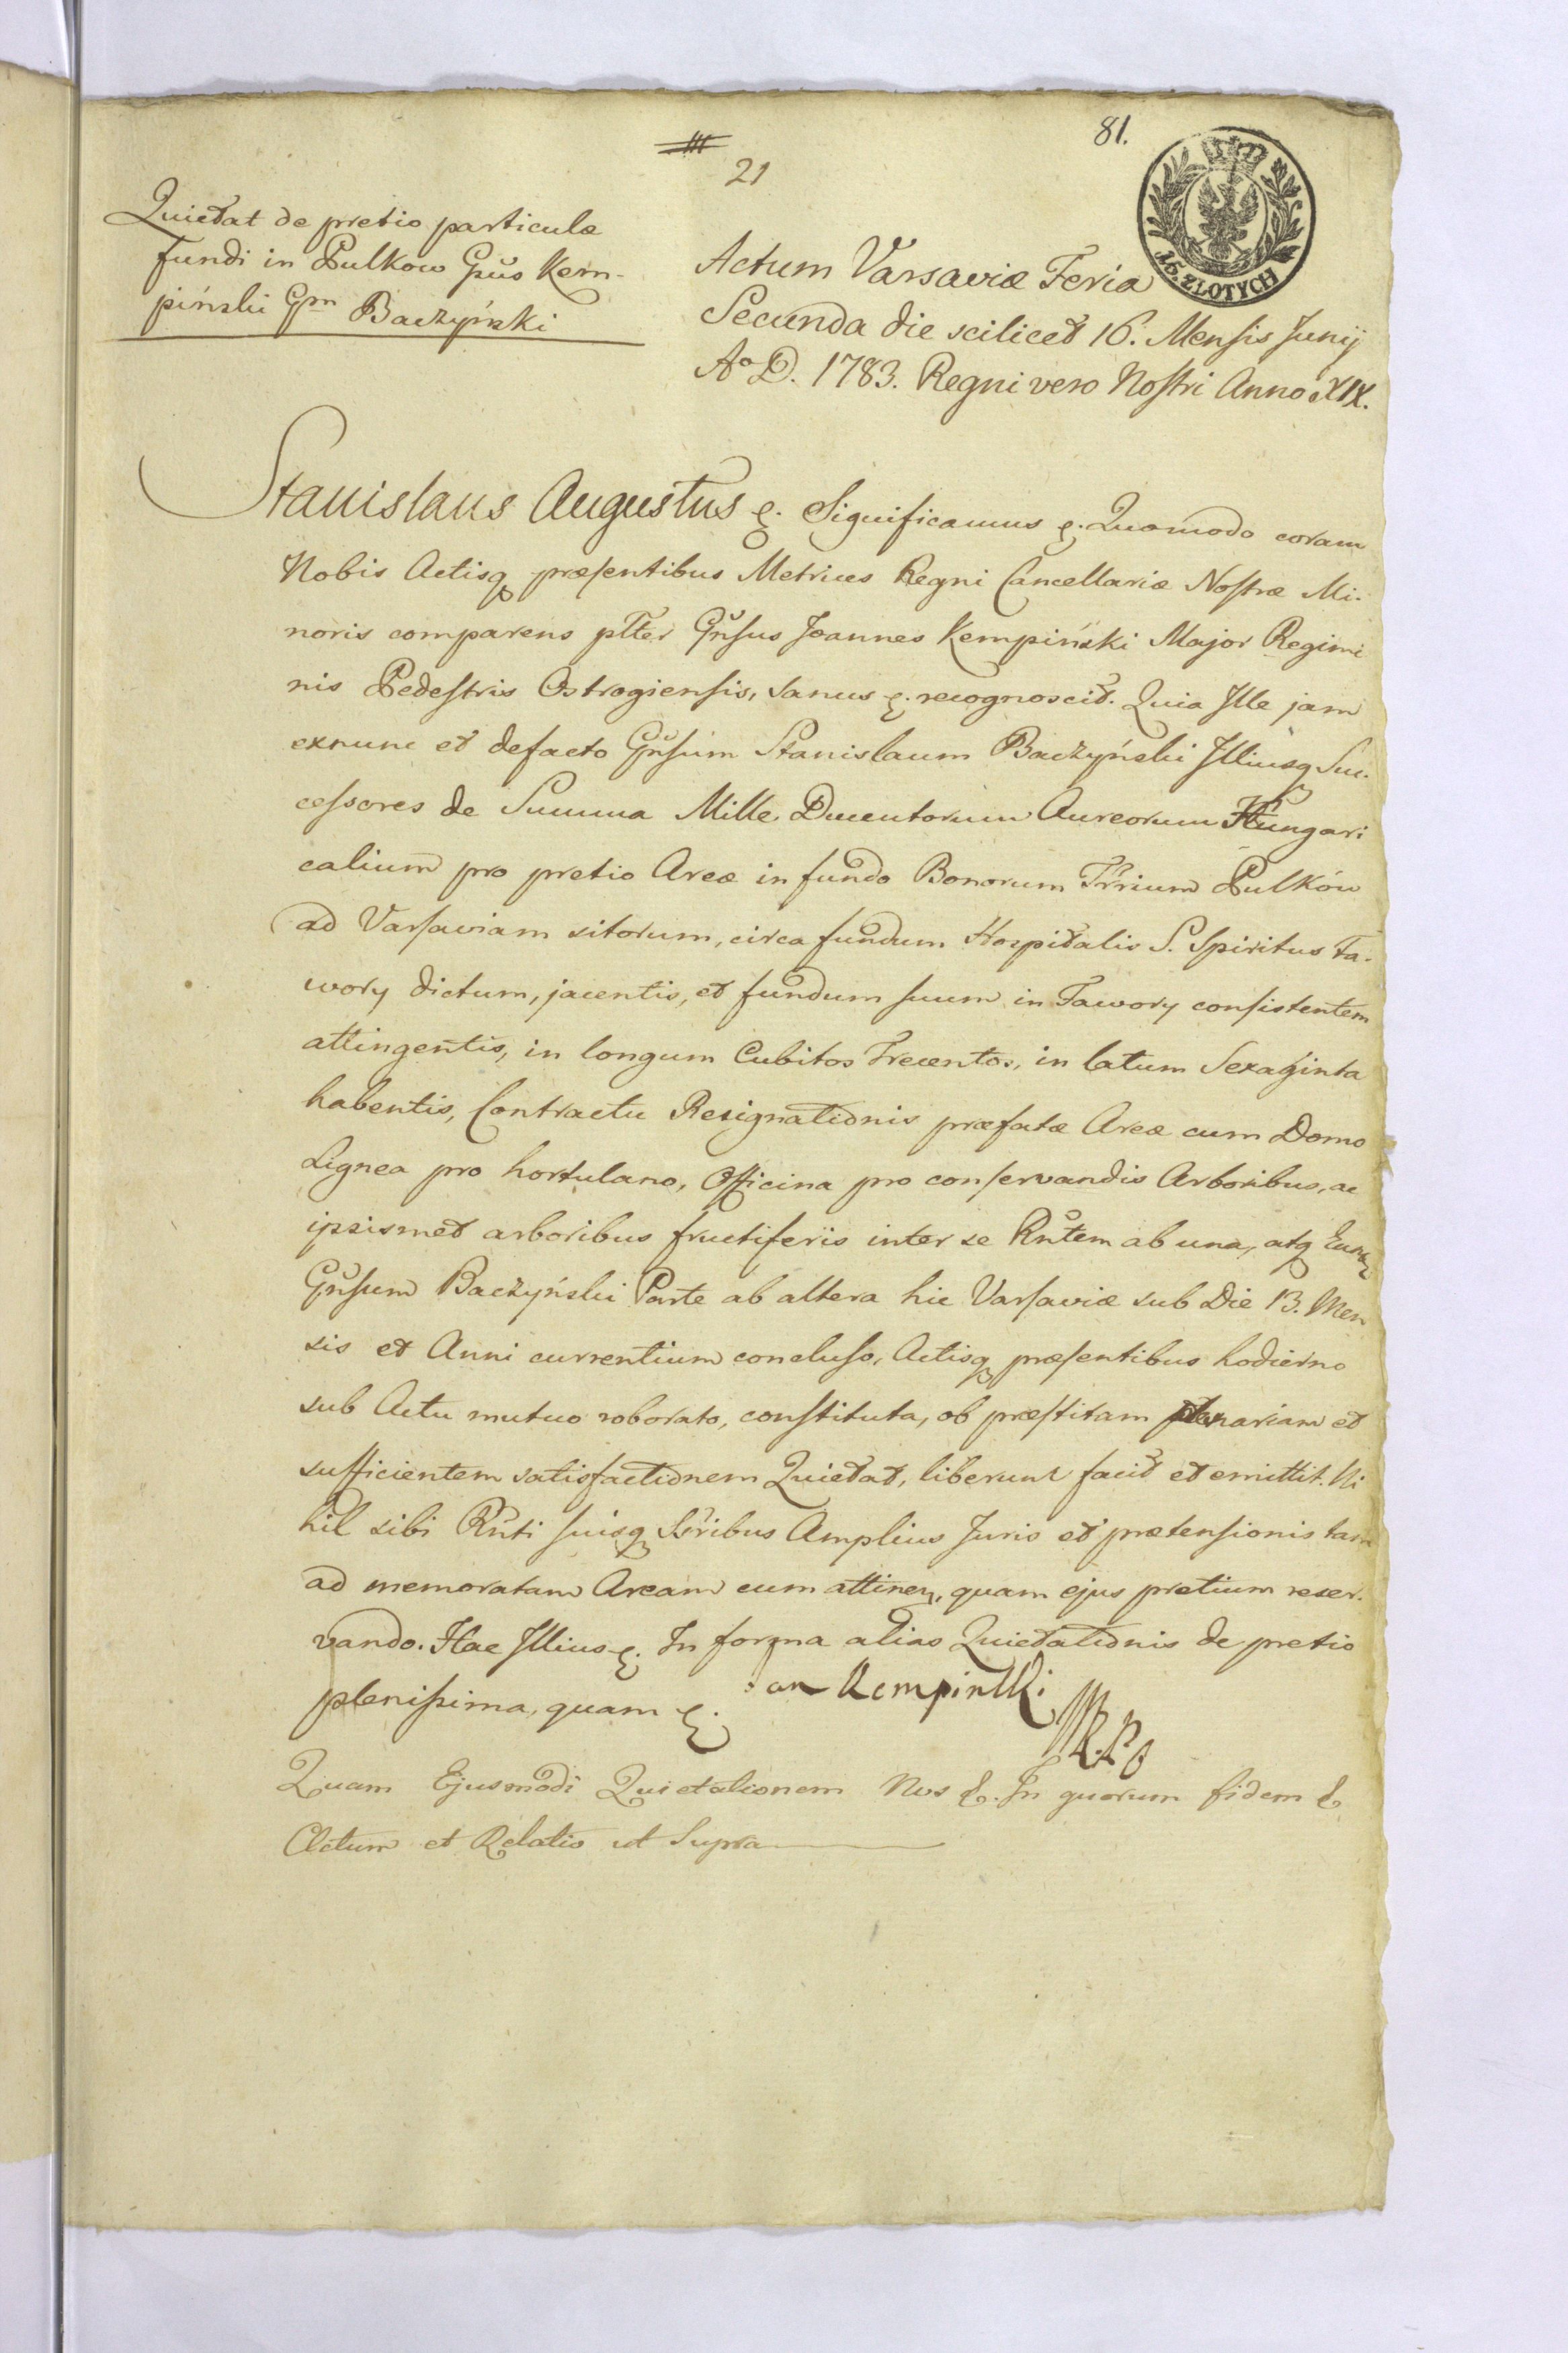 81.
21
15. ZŁOTYCH
Quietat de pretio particulæ
fundi in Pulkow Gsus Kem-
piński Gsm Baczyński
Actum Varsaviæ Feria
Secunda die scilicet 16. Mensis Junij
Aº D. 1783. Regni vero Nostri Anno XIX.
Stanislaus Augustus &. Significamus &. Quomodo coram
Nobis Actisq præsentibus Metrices Regni Cancellariæ Nostræ Mi-
noris comparens pltter Gnsus Joannes Kempiński Major Regimi
nis Pedestris Ostrogiensis, sanus &. recognoscit. Quia Ille jam
exnunc et defacto Gnsum Stanislaum Baczyński Illiusq Suc-
cessores de Summa Mille Ducentorum Aureorum Hungari
calium pro pretio Areæ in fundo Bonorum Trrium Pulków
ad Varsaviam sitorum, circa fundum Hospitalis S. Spiritus Fa-
wory dictum, jacentis, et fundum suum in Fawory consistentem
attingentis, in longum Cubitos Trecentos, in latum Sexaginta
habentis, Contractu Resignationis præfatæ Areæ cum Domo
Lignea pro hortulano, Officina pro conservandis Arboribus, ac
ipsismet arboribus fructiferis inter se Rntem ab una, atq Eund
Gnsum Baczyński Parte ab altera hic Varsaviæ sub Die 13. Men
sis et Anni currentium concluso, Actisq præsentibus hodierno
sub Actu mutuo roborato, constituta, ob præstitam plenariam et
sufficientem satisfactionem Quietat, liberum facit et emittit. Ni
hil sibi Rnti suisq Ssribus Amplius Juris et prætensionis tam
ad memoratam Aream cum attinen, quam ejus pretium reser-
vando. Hac Illius &. In forma alias Quietationis de pretio
plenissima, quam &.
Jan Kempinski
MRPO
Quam Ejusmodi Quietationem Nos &. In quorum fidem &
Actum et Relatio ut Supra